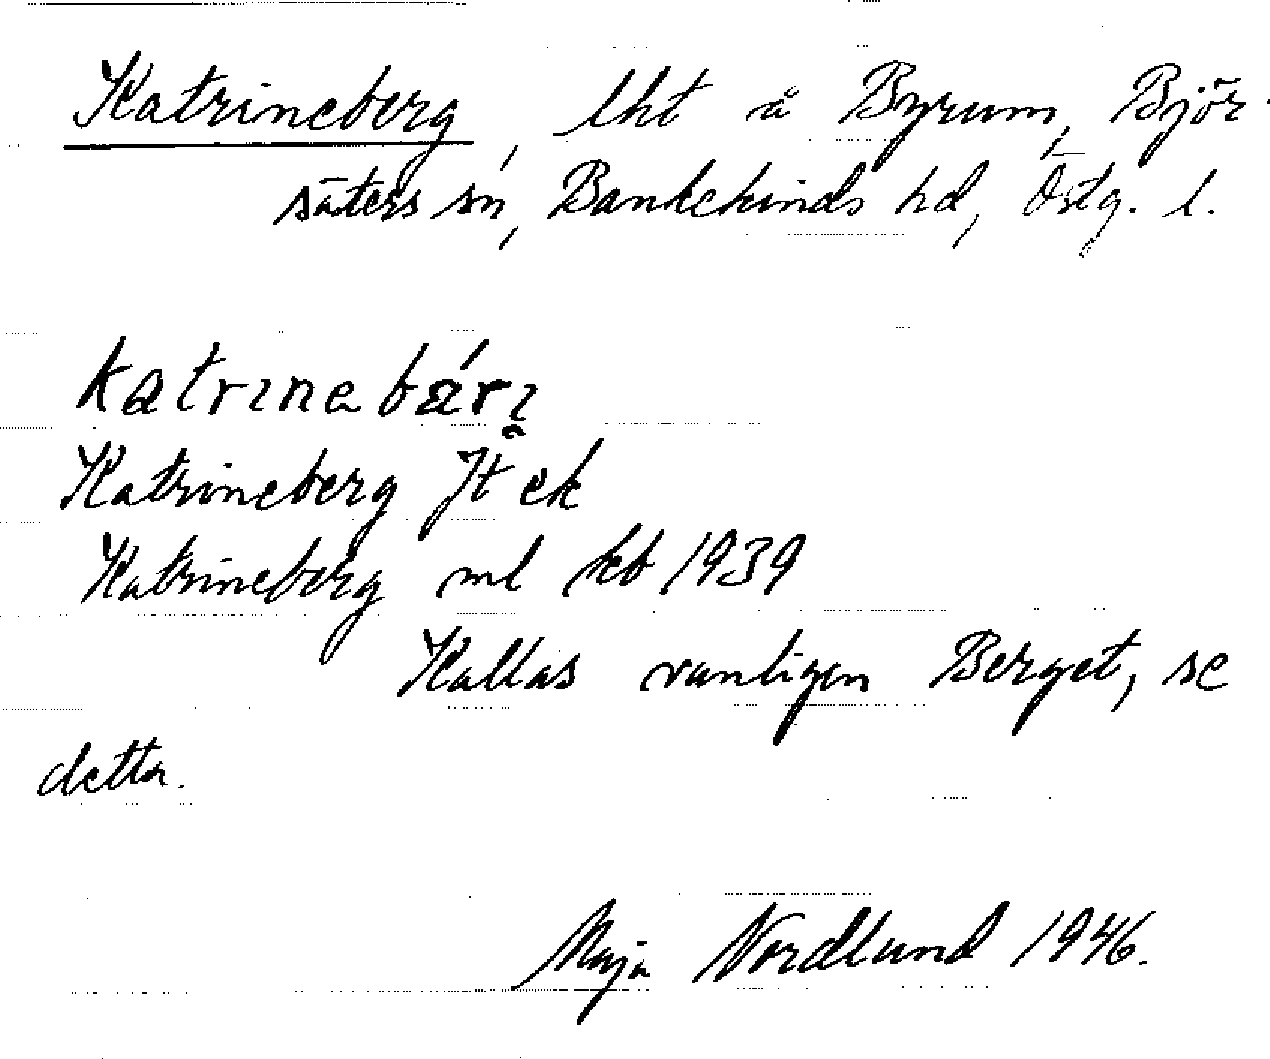 Katrineberg, lht å Byrum, Björ-
säters sn, Bankekinds hd, Östg. l.
katrinabärı̥
Katrineberg Jt ek
Katrineberg ml kb 1939
Kallas vanligen Berget, se
detta.
Maja Nordlund 1946.